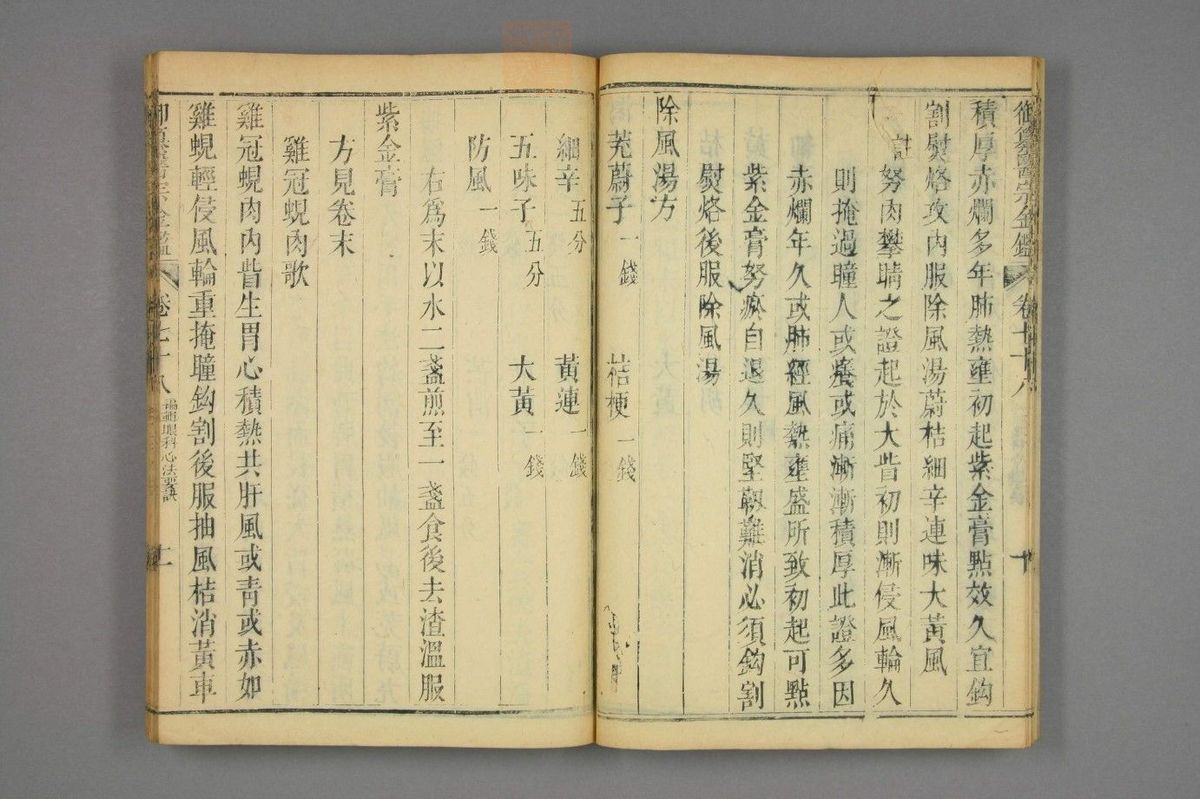 御纂醫宗金鑑 卷七十八 十
積厚赤爛多年肺熱壅初起紫金膏點效久宜鈎
割熨烙攻内服除風湯蔚桔細辛連味大黃風
註 努肉攀睛之證起於大眥初則漸侵風輪久
則掩過瞳人或癢或痛漸漸積厚此證多因
赤爛年久或肺經風熱壅盛所致初起可點
紫金膏努瘀自退久則堅韌難消必須鈎割
熨烙後服除風湯
除風湯方
茺蔚子一錢 桔梗一錢
細辛五分 黃連一錢
五味子五分 大黃一錢
防風一錢
右爲末以水二盞煎至一盞食後去渣溫服
紫金膏
方見卷末
雞冠蜆肉歌
雞冠蜆肉内眥生胃心積熱共肝風或靑或赤如
雞蜆輕侵風輪重掩瞳鈎割後服抽風桔消黃車
御纂醫宗金鑑 卷七十八 編輯眼科心法要訣 十一